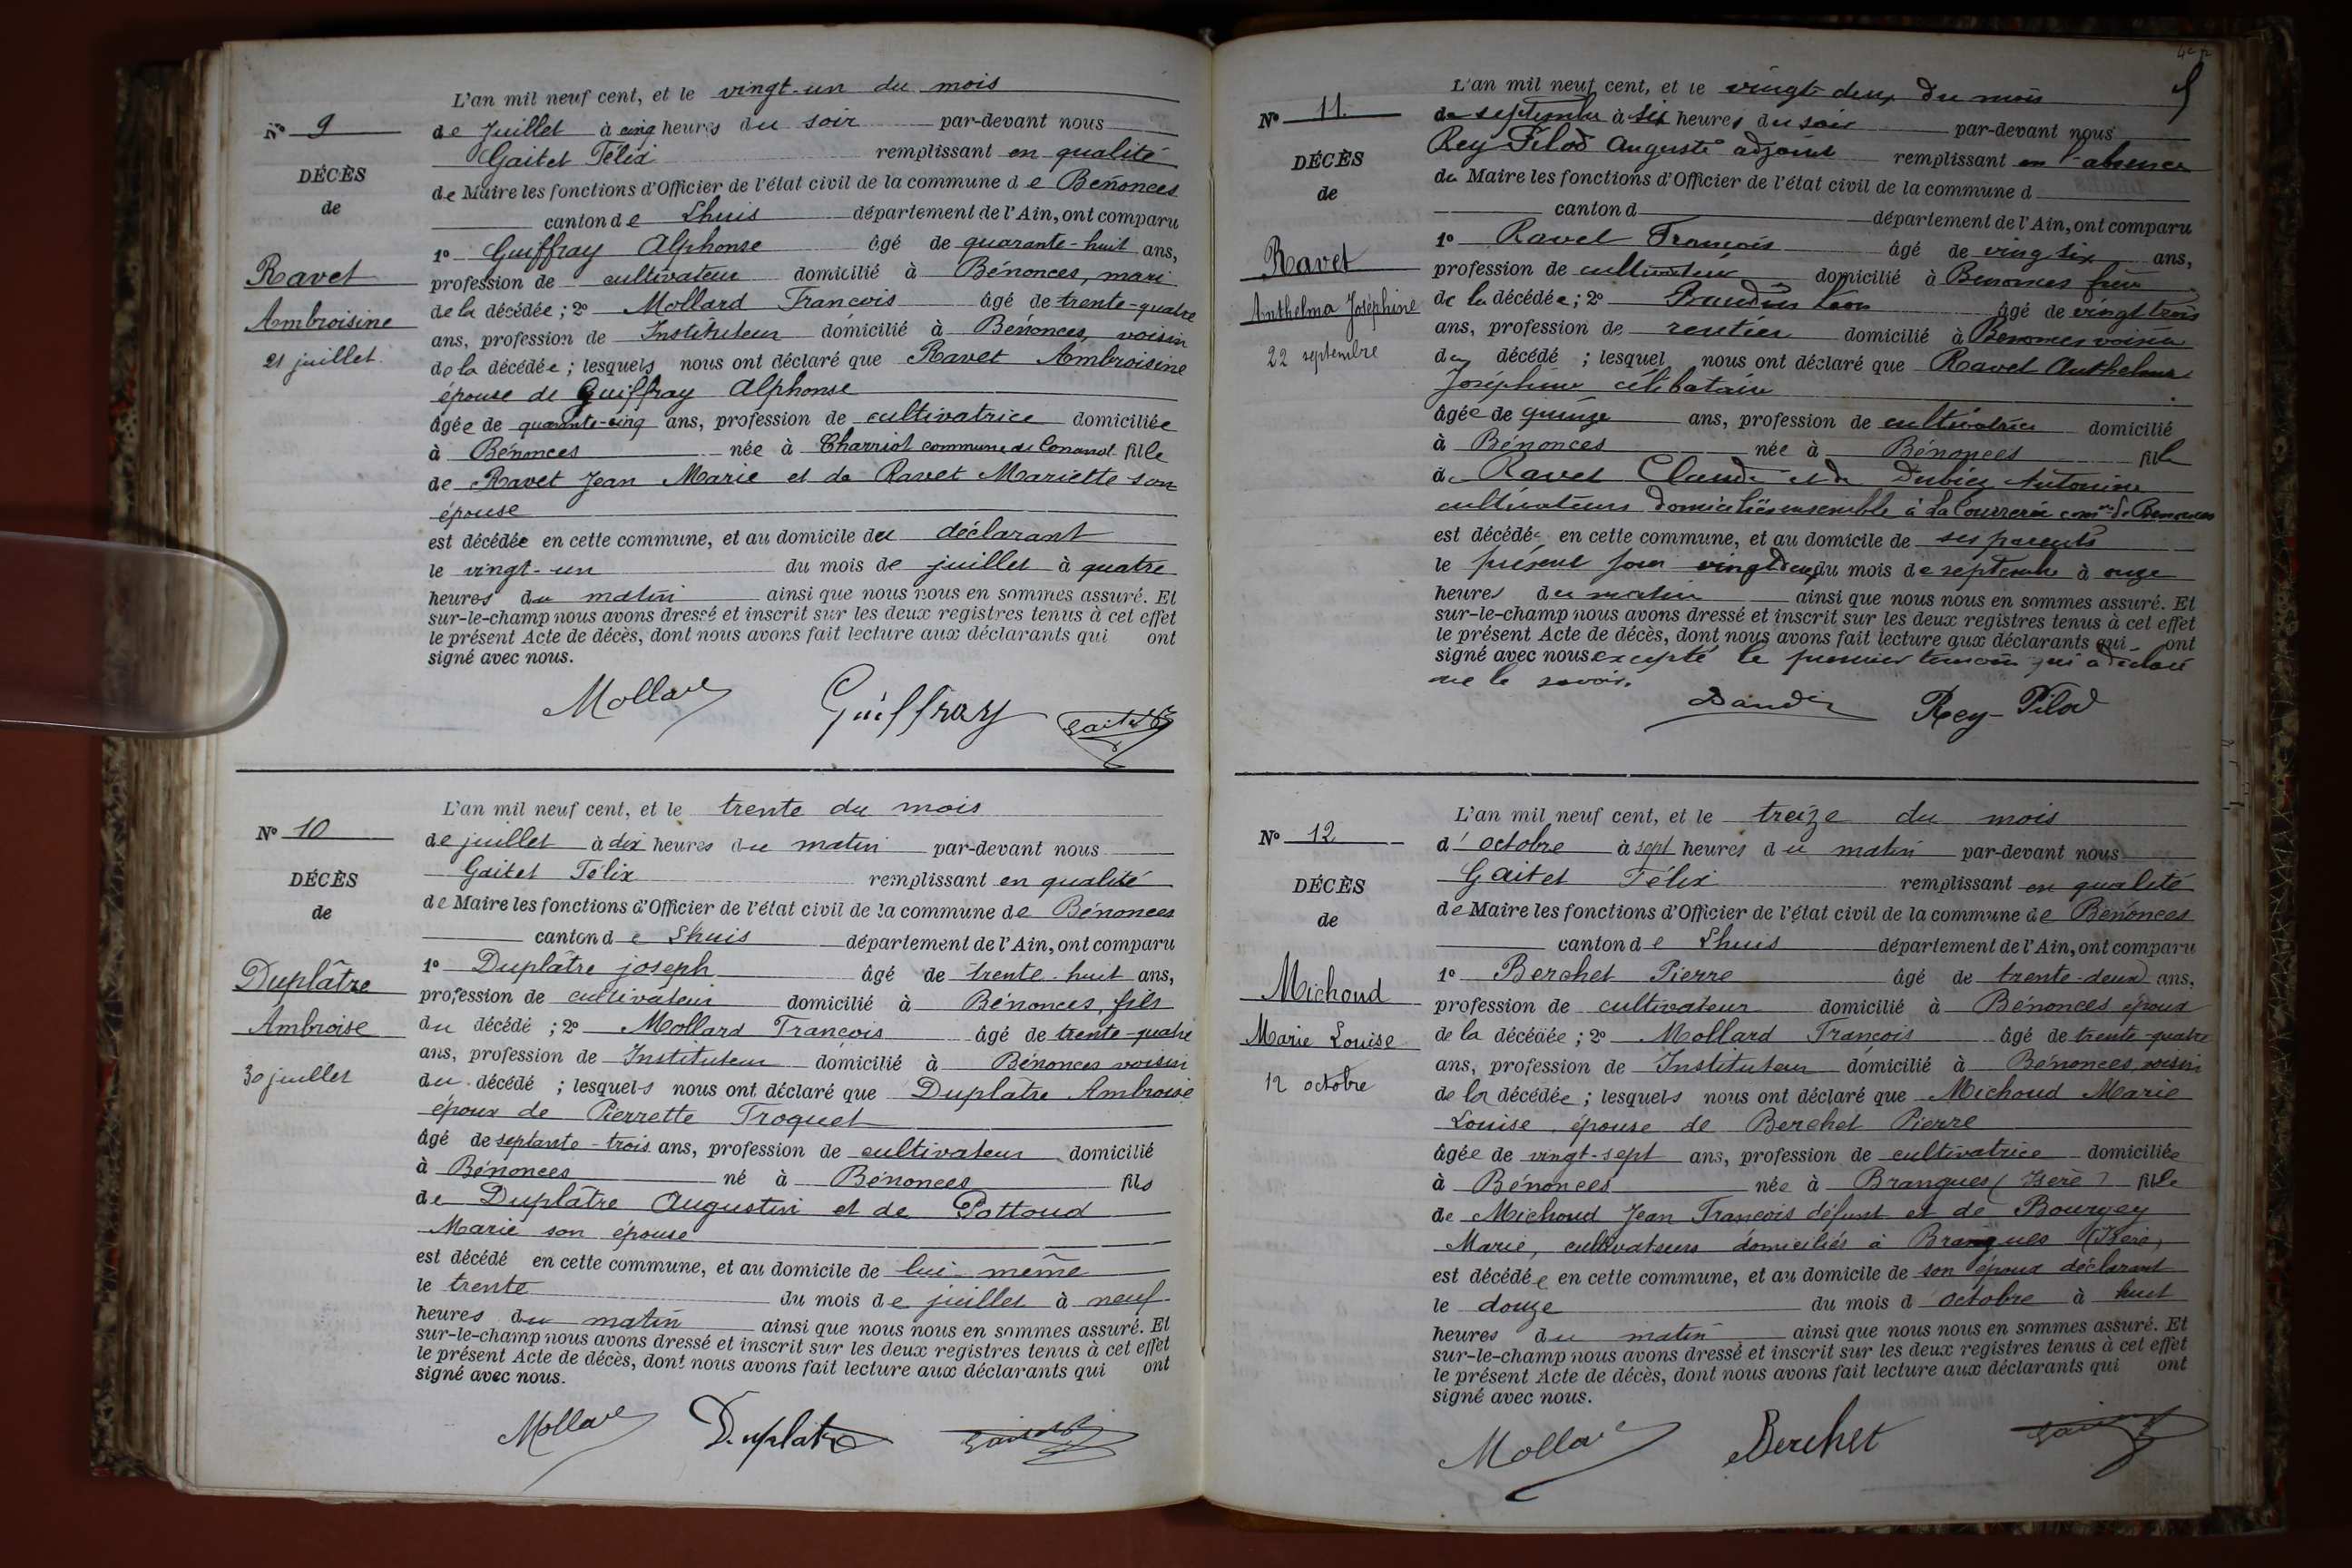 L'an mil neuf cent, et le vingt-un du mois
N° 9
de Juillet à cinq heures du soir par-devant nous
Gaitet Félix remplissant en qualité
DÉCÈS
de Maire les fonctions d'Officier de l'état civil de la commune de Bénonces
de
canton de Lhuis département de l'Ain, ont comparu
1° Guiffray Alphonse âgé de quarante-huit ans,
Ravet
profession de cultivateur domicilié à Bénonces, mari
de la décédée ; 2° Mollard François âgé de trente-quatre
Ambroisine
ans, profession de Instituteur domicilié à Bénonces, voisin
21 juillet.
de la décédée ; lesquels nous ont déclaré que Ravet Ambroisine
épouse de Guiffray Alphonse
âgée de quarante-cinq ans, profession de cultivatrice domiciliée
à Bénonces née à Charriot commune de Conand fille
de Ravet Jean Marie et de Ravet Mariette son
épouse
est décédée en cette commune, et au domicile du déclarant
le vingt-un du mois de juillet à quatre
heures du matin ainsi que nous nous en sommes assuré. Et
sur-le-champ nous avons dressé et inscrit sur les deux registres tenus à cet effet
le présent Acte de décès, dont nous avons fait lecture aux déclarants qui ont
signé avec nous.
Mollard Guiffray Gaitet
L'an mil neuf cent, et le trente du mois
N° 10
de juillet à dix heures du matin par-devant nous
Gaitet Félix remplissant en qualité
DÉCÈS
de Maire les fonctions d'Officier de l'état civil de la commune de Bénonces
de
canton de Lhuis département de l'Ain, ont comparu
1° Duplâtre joseph âgé de trente-huit ans,
Duplâtre
profession de cultivateur domicilié à Bénonces, fils
du décédé ; 2° Mollard François âgé de trente-quatre
Ambroise
ans, profession de Instituteur domicilié à Bénonces voisin
30 juillet
du décédé ; lesquels nous ont déclaré que Duplatre Ambroise
époux de Pierrette Troquet
âgé de septante-trois ans, profession de cultivateur domicilié
à Bénonces né à Bénonces fils
de Duplâtre Augustin et de Pattoud
Marie son épouse
est décédé en cette commune, et au domicile de lui-même
le trente du mois de juillet à neuf
heures du matin ainsi que nous nous en sommes assuré. Et
sur-le-champ nous avons dressé et inscrit sur les deux registres tenus à cet effet
le présent Acte de décès, dont nous avons fait lecture aux déclarants qui ont
signé avec nous.
Mollard Duplatre Gaitet
L'an mil neuf cent, et le vingt-deux du mois
N° 11.
de septembre à six heures du soir par-devant nous
Rey Pilod Auguste adjoint remplissant en l'absence
DÉCÈS
du Maire les fonctions d'Officier de l'état civil de la commune d
de
canton d département de l'Ain, ont comparu
1° Ravet François âgé de ving six ans,
Ravet
profession de cultivateur domicilié à Benonces frère
Anthelma Joséphine
de la décédée ; 2° Baudin Léon âgé de vingt trois
ans, profession de rentier domicilié à Benonces voisin
22 septembre
du décédé ; lesquel nous ont déclaré que Ravet Anthelma
Joséphine célibataire
âgée de quinze ans, profession de cultivatrice domicilié
à Bénonces née à Bénonces fille
de Ravet Claude et de Dubiez Antonine
cultivateurs domiciliés ensemble à La Courrerie comne de Benonces
est décédée en cette commune, et au domicile de ses parents
le présent jour vingt deux du mois de septembre à onze
heures du matin ainsi que nous nous en sommes assuré. Et
sur-le-champ nous avons dressé et inscrit sur les deux registres tenus à cet effet
le présent Acte de décès, dont nous avons fait lecture aux déclarants qui ont
signé avec nous excepté le premier temoin qui a déclaré
ne le savoir.
Baudin Rey-Pilod
L'an mil neuf cent, et le treize du mois
N° 12
d'octobre à sept heures du matin par-devant nous
Gaitet Félix remplissant en qualité
DÉCÈS
de Maire les fonctions d'Officier de l'état civil de la commune de Bénonces
de
canton de Lhuis département de l'Ain, ont comparu
1° Berchet Pierre âgé de trente-deux ans,
Michoud
profession de cultivateur domicilié à Bénonces époux
Marie Louise
de la décédée ; 2° Mollard François âgé de trente-quatre
ans, profession de Instituteur domicilié à Bénonces, voisin
12 octobre
de la décédée ; lesquels nous ont déclaré que Michoud Marie
Louise, épouse de Berchet Pierre
âgée de vingt-sept ans, profession de cultivatrice domiciliée
à Bénonces née à Brangues (Isère) fille
de Michoud Jean François défunt et de Bourgey
Marie, cultivateurs domiciliés à Brangues (Isère)
est décédée en cette commune, et au domicile de son époux déclarant
le douze du mois d'octobre à huit
heures du matin ainsi que nous nous en sommes assuré. Et
sur-le-champ nous avons dressé et inscrit sur les deux registres tenus à cet effet
le présent Acte de décès, dont nous avons fait lecture aux déclarants qui ont
signé avec nous.
Mollard Berchet Gaitet